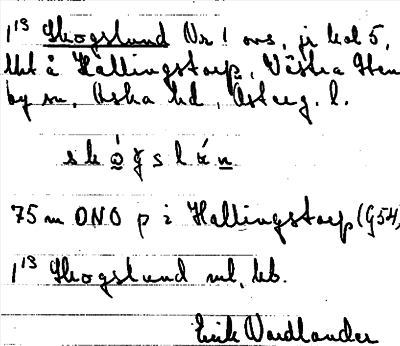 1¹³ Skogslund Nr 1 ovs, jr kol 5,
lht å Hällingstorp, Västra Sten
by sn, Aska hd, Österg. l.
75 m ONO p i Hallingstorp (G54)
1¹³ Skogslund ml, kb.
Erik Wardlander